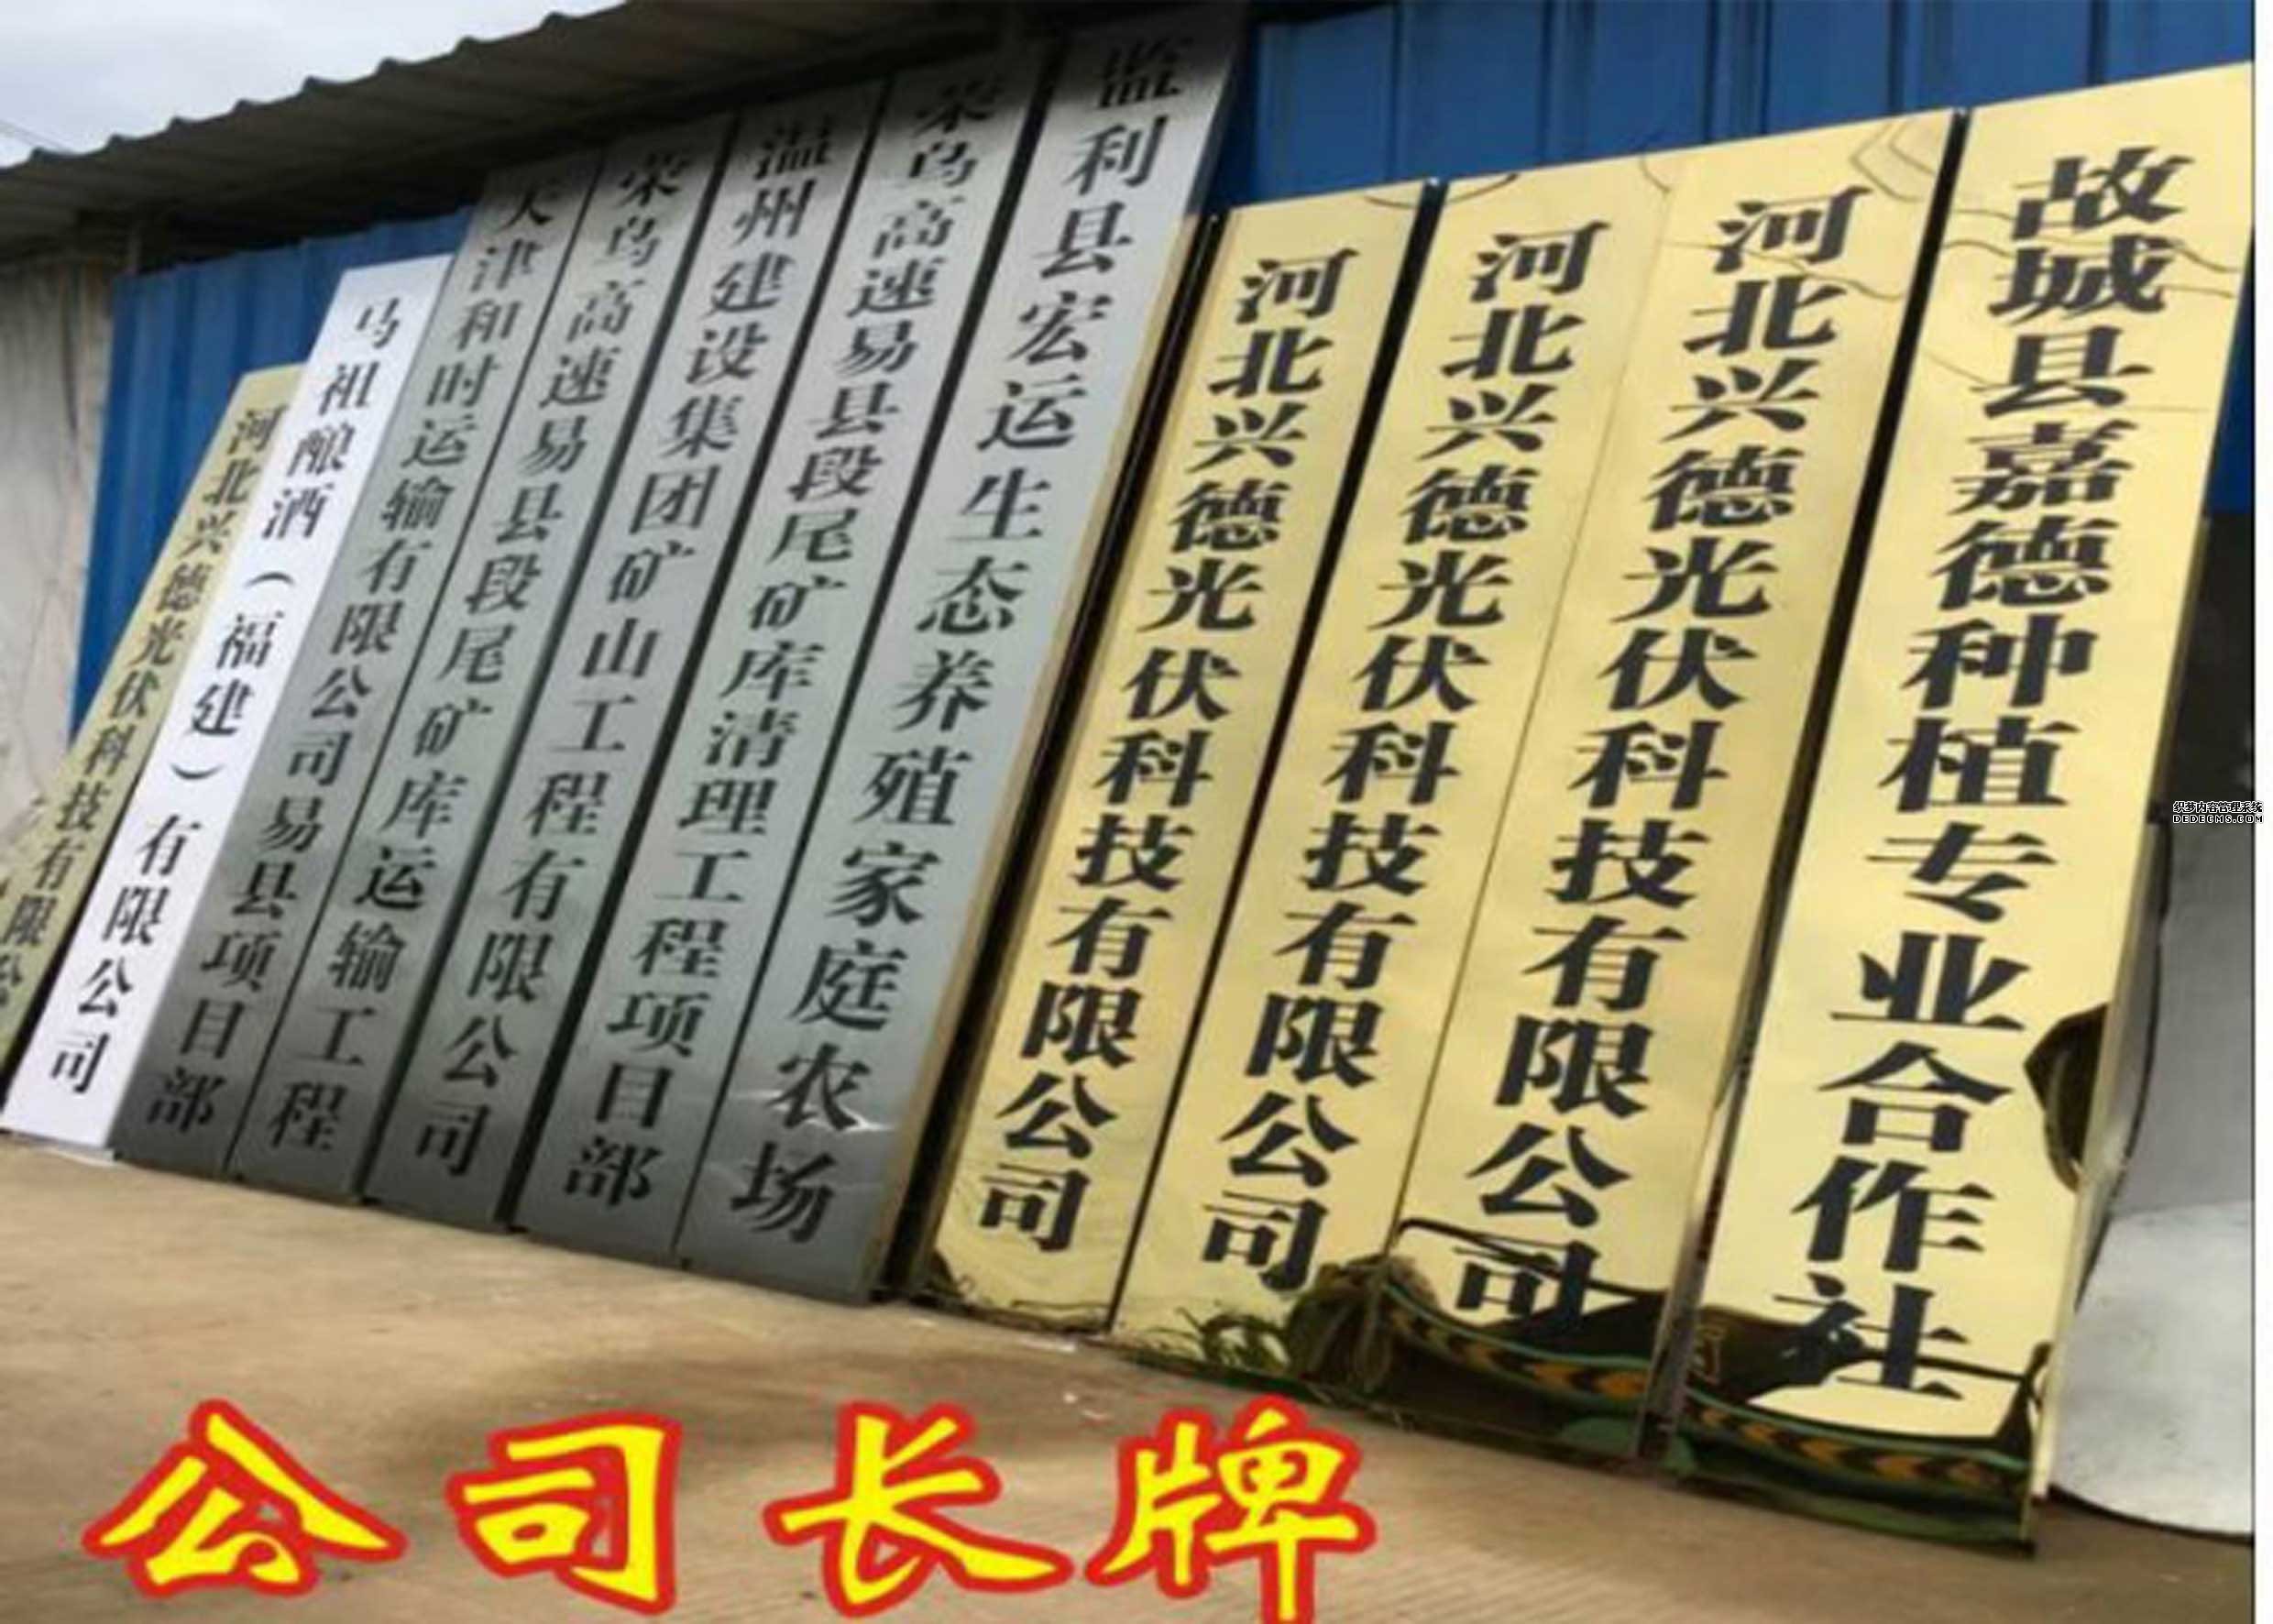 河北兴德光伏科技有限公
马祖酿酒（福建）有限公司
天津和时运输有限公司易县项目部
荣乌高速易县段尾矿库运输工程
温州建设集团矿山工程有限公司
荣乌高速易县段尾矿库清理工程项目部
监利县宏运生态养殖家庭农场
河北兴德光伏科技有限公司
河北兴德光伏科技有限公司
河北兴德光伏科技有限公司
故城县嘉德种植专业合作社
织梦内容管理系统
DEDECMS.COM
公司长牌